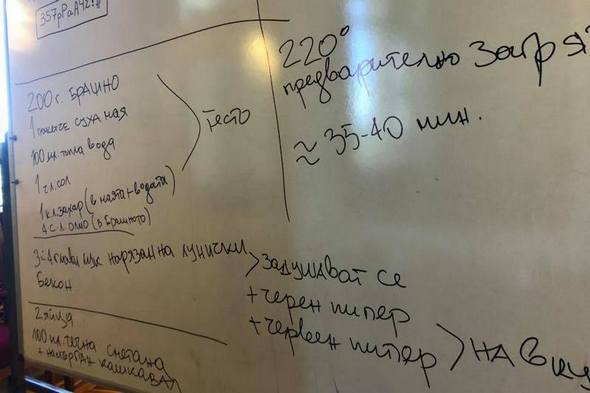 220°
предварително загря
≈ 35-40 мин.
200 г. Брашно
1 пакетче суха мая
100 мл. топла вода
1 ч.л. сол
1 к.л. захар (в маята + водата)
4 с.л. олио (в брашното)
тесто
3-4 глави лук нарязан на лунички
Бекон
задушават се
+ черен пипер
+ червен пипер
на вку
2 яйца
100 мл. течна сметана
+ настърган кашкавал